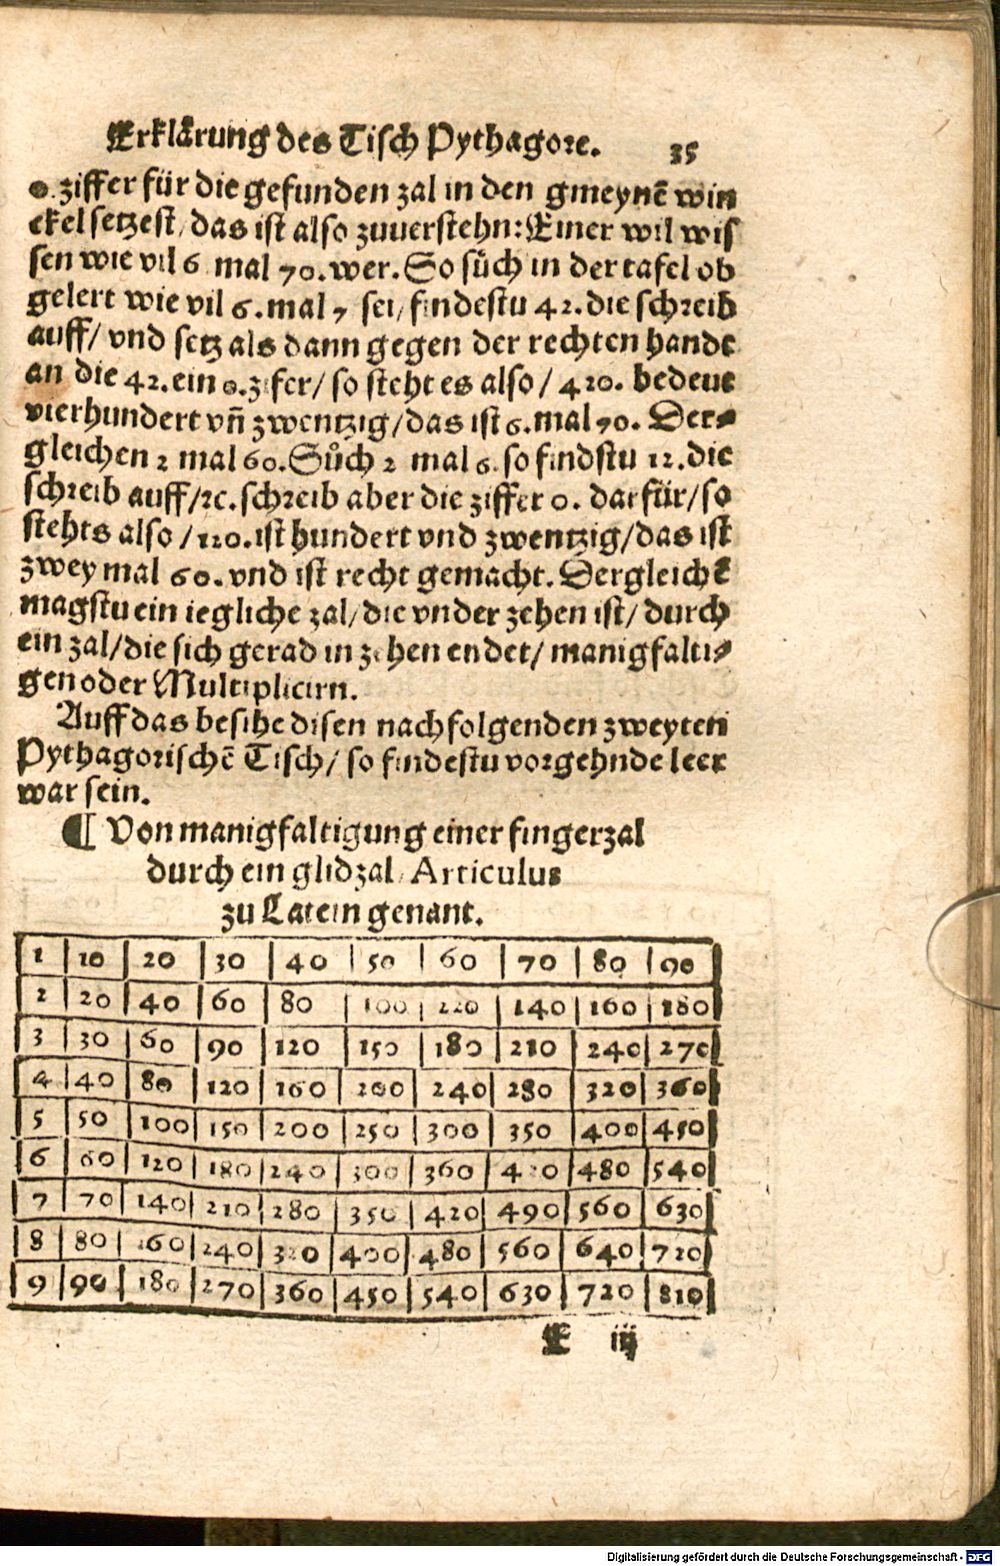 Erklärung des Tisch Pythagore. 35
0.ziffer für die gefunden zal in den gmeynē win
ckel setzest/das ist also zuuerstehn:Einer wil wis
sen wie vil 6 mal 70.wer.So sůch in der tafel ob
gelert wie vil 6.mal 7 sei/findestu 42.die schreib
auff/vnd setz als dann gegen der rechten handt
an die 42.ein 0.zifer/so steht es also/420. bedeut
vierhundert vñ zwentzig/das ist 6.mal 70. Der⸗
gleichen 2 mal 60.Sůch 2 mal 6.so findstu 12.die
schreib auff/ꝛc.schreib aber die ziffer 0. darfür/so
stehts also/120.ist hundert vnd zwentzig/das ist
zwey mal 60.vnd ist recht gemacht.Dergleichē
magstu ein iegliche zal/die vnder zehen ist/durch
ein zal/die sich gerad in zehen endet/manigfalti⸗
gen oder Multiplicirn.
Auff das besihe disen nachfolgenden zweyten
Pythagorischē Tisch/so findestu vorgehnde leer
war sein.
¶ Von manigfaltigung einer fingerzal
durch ein glidzal/Articulus
zu Latein genant.
1 10 20 30 40 50 60 70 80 90
2 20 40 60 80 100 120 140 160 180
3 30 60 90 120 150 180 210 240 270
4 40 80 120 160 200 240 280 320 360
5 50 100 150 200 250 300 350 400 450
6 60 120 180 240 300 360 420 480 540
7 70 140 210 280 350 420 490 560 630
8 80 160 240 320 400 480 560 640 720
9 90 180 270 360 450 540 630 720 810
E iij
Digitalisierung gefördert durch die Deutsche Forschungsgemeinschaft - DFG